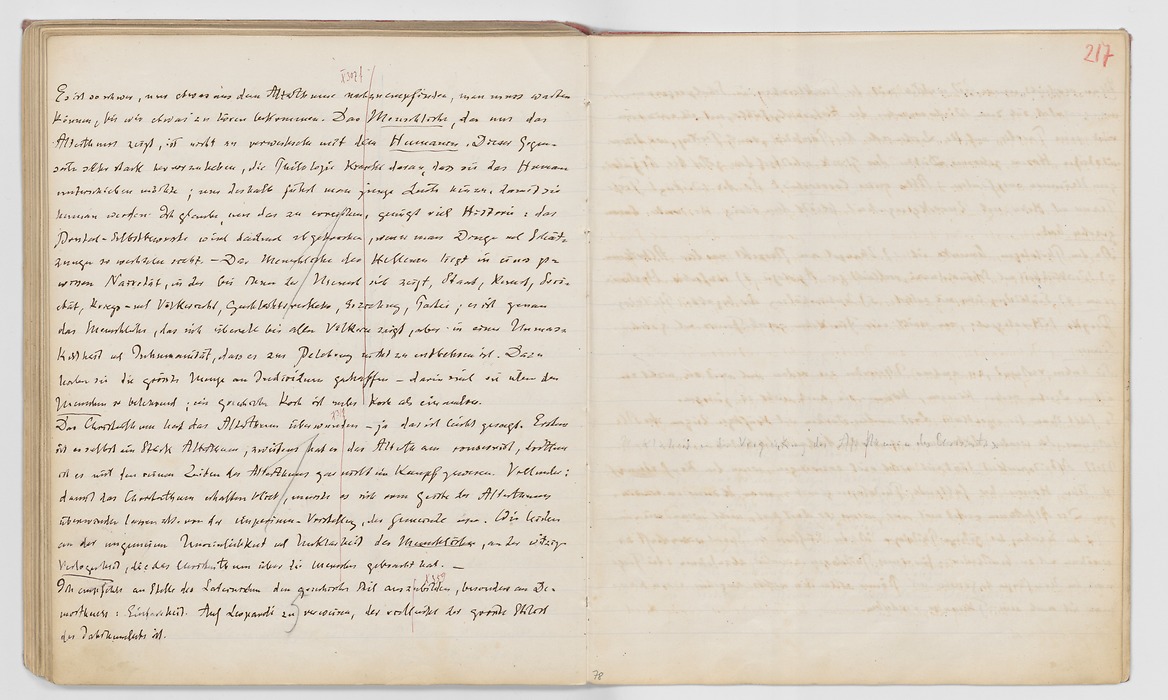 X307f
Es ist so schwer, uns etwas aus dem Alterthume nachzuempfinden, man muss warten
können, bis wir etwas zu hören bekommen. Das Menschliche, das uns das
Alterthum zeigt, ist nicht zu verwechseln mit dem Humanen. Dieser Gegen-
satz sehr stark hervorzuheben, die Philologie krankt daran, dass sie das Humane
unterschieben möchte; nur deshalb führt man junge Leute hinein, damit sie
human werden. Ich glaube, um das zu erreichen, genügt viel Historie: das
-Selbstbewusste wird dadurch abgebrochen, wenn man Dinge und Schät-
zungen so wechseln sieht. — Das Menschliche der Hellenen liegt in einer ge-
wissen Naivität, in der bei ihnen der Mensch sich zeigt, Staat, Kunst, Soci-
etät, Kriegs- und Völkerrecht, Geschlechtsverkehr, Erziehung, Partei; es ist genau
das Menschliche, das sich überall bei allen Völkern zeigt, aber in einer Unmas-
kirtheit und Inhumanität, dass es zur Belehrung nicht zu entbehren ist. Dazu
haben sie die grösste Menge an Individuen geschaffen — darin sind sie über den
Menschen so belehrend; ein griechischer Koch ist mehr Koch als ein andrer.
Das Christenthum hat das Alterthum überwunden — ja das ist leicht gesagt. Erstens
ist es selbst ein Stück Alterthum, zweitens hat es das Alterthum conservirt, drittens
ist es mit den reinen Zeiten des Alterthums gar nicht im Kampf gewesen. Vielmehr:
damit das Christenthum erhalten blieb, musste es sich vom Geiste des Alterthums
überwinden lassen z. B. von der imperium-Vorstellung, der Gemeinde usw. Wir leiden
an der ungemeinen Unreinlichkeit und Unklarheit des Menschlichen, an der witzigen
Verlogenheit, die das Christenthum über die Menschen gebracht hat. —
Ich empfehle an Stelle des Lateinischen den griechischen Stil auszubilden, besonders an De-
mosthenes: Einfachheit. Auf Leopardi zu verweisen, der vielleicht der grösste Stilist
des Jahrhunderts ist.
217
78